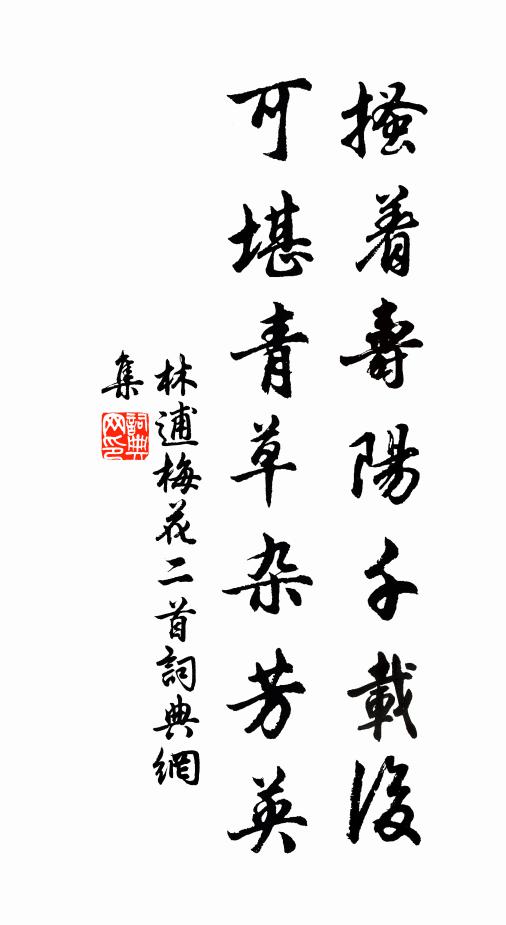 搔着壽陽千載後
可堪青草杂芳英
林逋梅花二首詞典網
集
詞典
网印